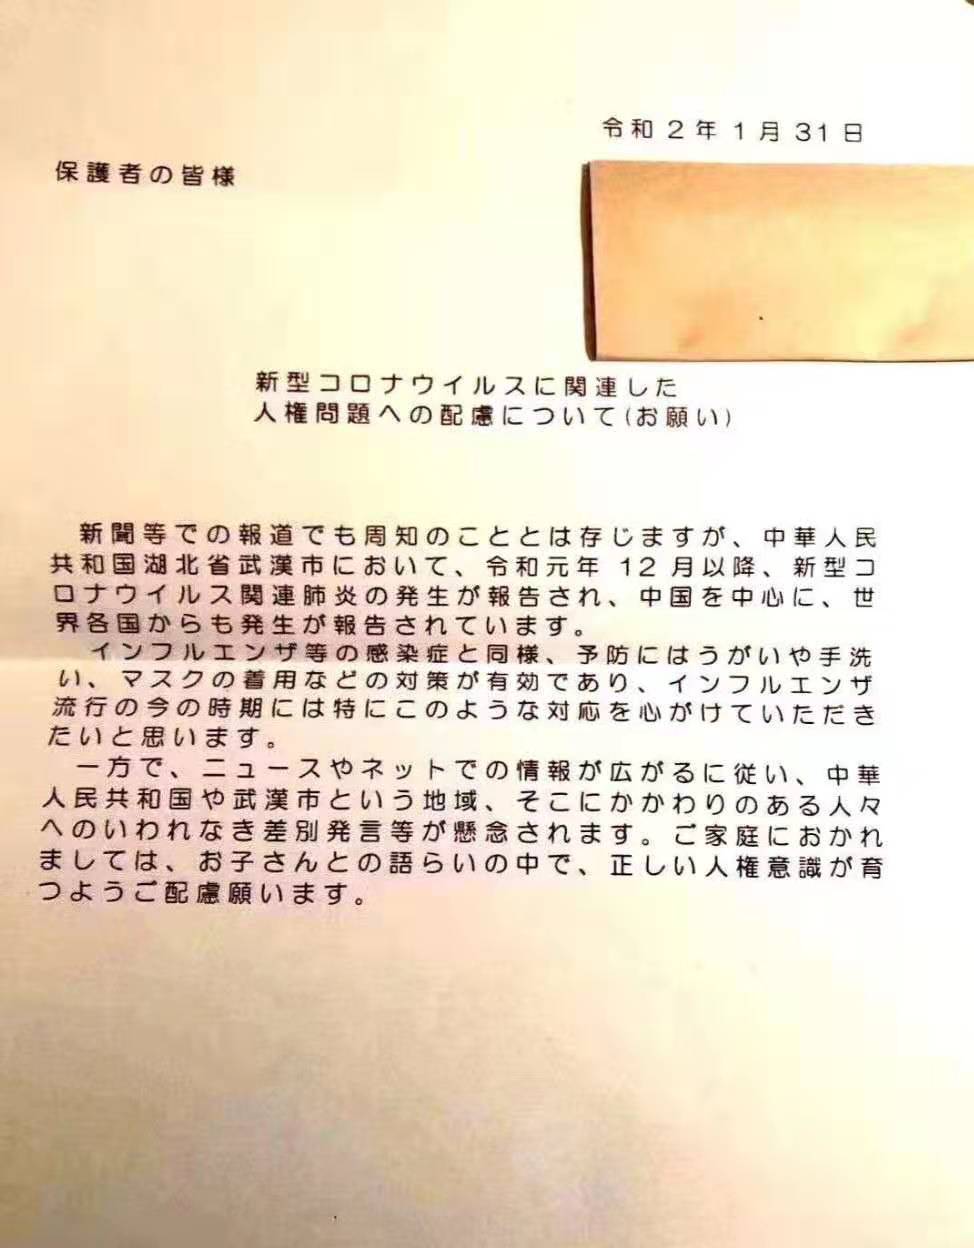 令和2年1月31日
保護者の皆様
新型コロナウイルスに関連した
人権問題への配慮について(お願い)
新聞等での報道でも周知のこととは存じますが、中華人民
共和国湖北省武漢市において、令和元年12月以降、新型コ
ロナウイルス関連肺炎の発生が報告され、中国を中心に、世
界各国からも発生が報告されています。
インフルエンザ等の感染症と同様、予防にはうがいや手洗
い、マスクの着用などの対策が有効であり、インフルエンザ
流行の今の時期には特にこのような対応を心がけていただき
たいと思います。
一方で、ニュースやネットでの情報が広がるに従い、中華
人民共和国や武漢市という地域、そこにかかわりのある人々
へのいわれなき差別発言等が懸念されます。ご家庭におかれ
ましては、お子さんとの語らいの中で、正しい人権意識が育
つようご配慮願います。